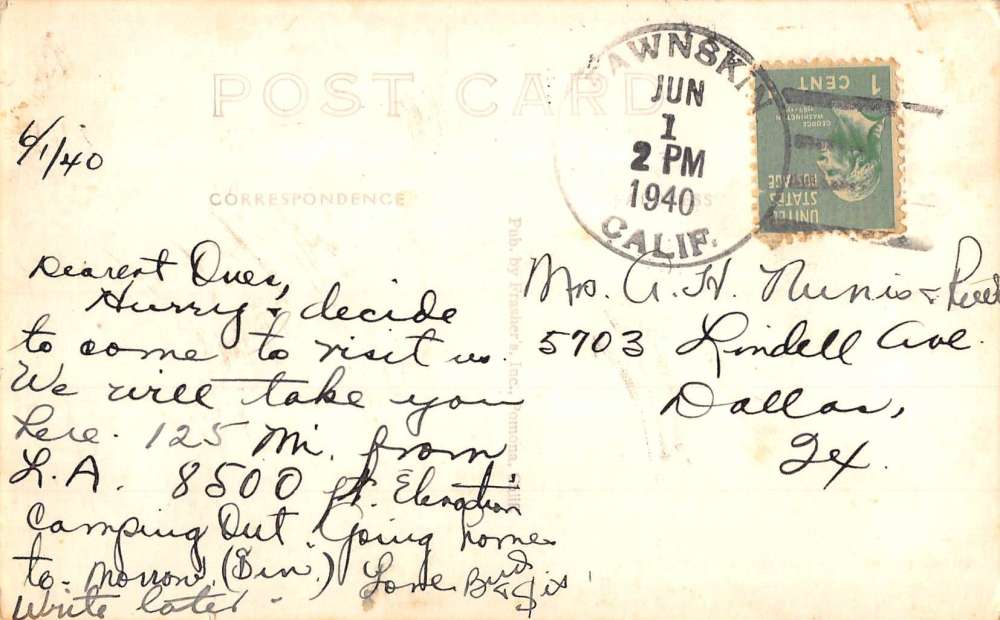 POST CARD
6/1/40
CORRESPONDENCE
Dearest Ones,
Hurry & decide
to come to visit us.
We will take you
here. 125 Mi. from
L.A. 8500 ft. Elevation
Camping Out. Going home
to-morrow. (Sun.) Love Bud & Sis
Write later.
Pub. by Frasher's, Inc., Pomona, Calif.
FAWNSKIN
JUN
1
2 PM
1940
CALIF.
1
CENT
GEORGE
WASHINGTON
UNITED
STATES
POSTAGE
Mrs. A. H. Nunis &
5703 Lindell Ave.
Dallas,
Tex.